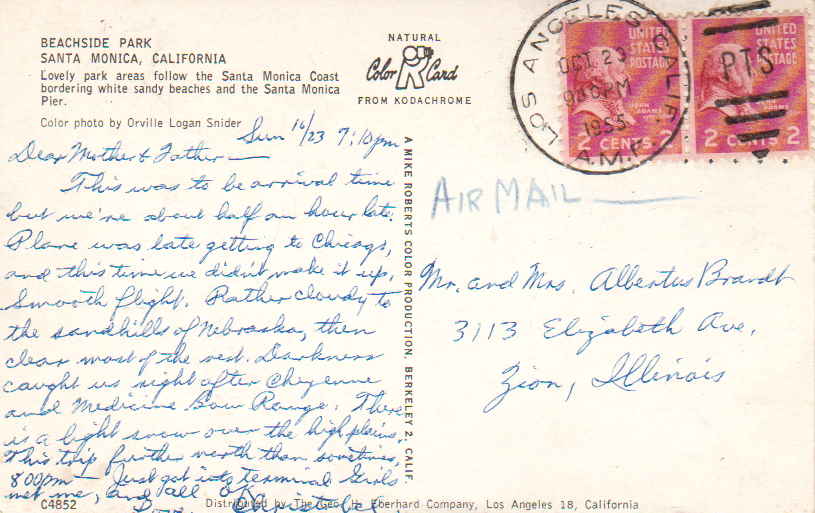 BEACHSIDE PARK
SANTA MONICA, CALIFORNIA
Lovely park areas follow the Santa Monica Coast
bordering white sandy beaches and the Santa Monica
Pier.
Color photo by Orville Logan Snider
NATURAL
Color Card
FROM KODACHROME
LOS ANGELES CALIF.
OCT 23
9 PM
1955
A.M.F.
PTS
UNITED
STATES
POSTAGE
JOHN ADAMS
2 CENTS 2
UNITED
STATES
POSTAGE
2 CENTS 2
Sun 10/23 7:10 pm
Dear Mother & Father —
This was to be arrival time
but we're about half an hour late.
Plane was late getting to Chicago,
and this time we didn't make it up.
Smooth flight. Rather cloudy to
the sandhills of Nebraska, then
clear most of the rest. Darkness
caught us right after Cheyenne
and Medicine Bow Range. There
is a light snow over the high plains.
This trip further north than sometimes,
8:00 pm — Just got into terminal. Girls
met me, and all OK.
A MIKE ROBERTS COLOR PRODUCTION, BERKELEY 2, CALIF.
AIR MAIL
Mr. and Mrs. Albertus Brandt
3113 Elizabeth Ave.
Zion, Illinois
C4852
Distributed by The Geo. H. Eberhard Company, Los Angeles 18, California